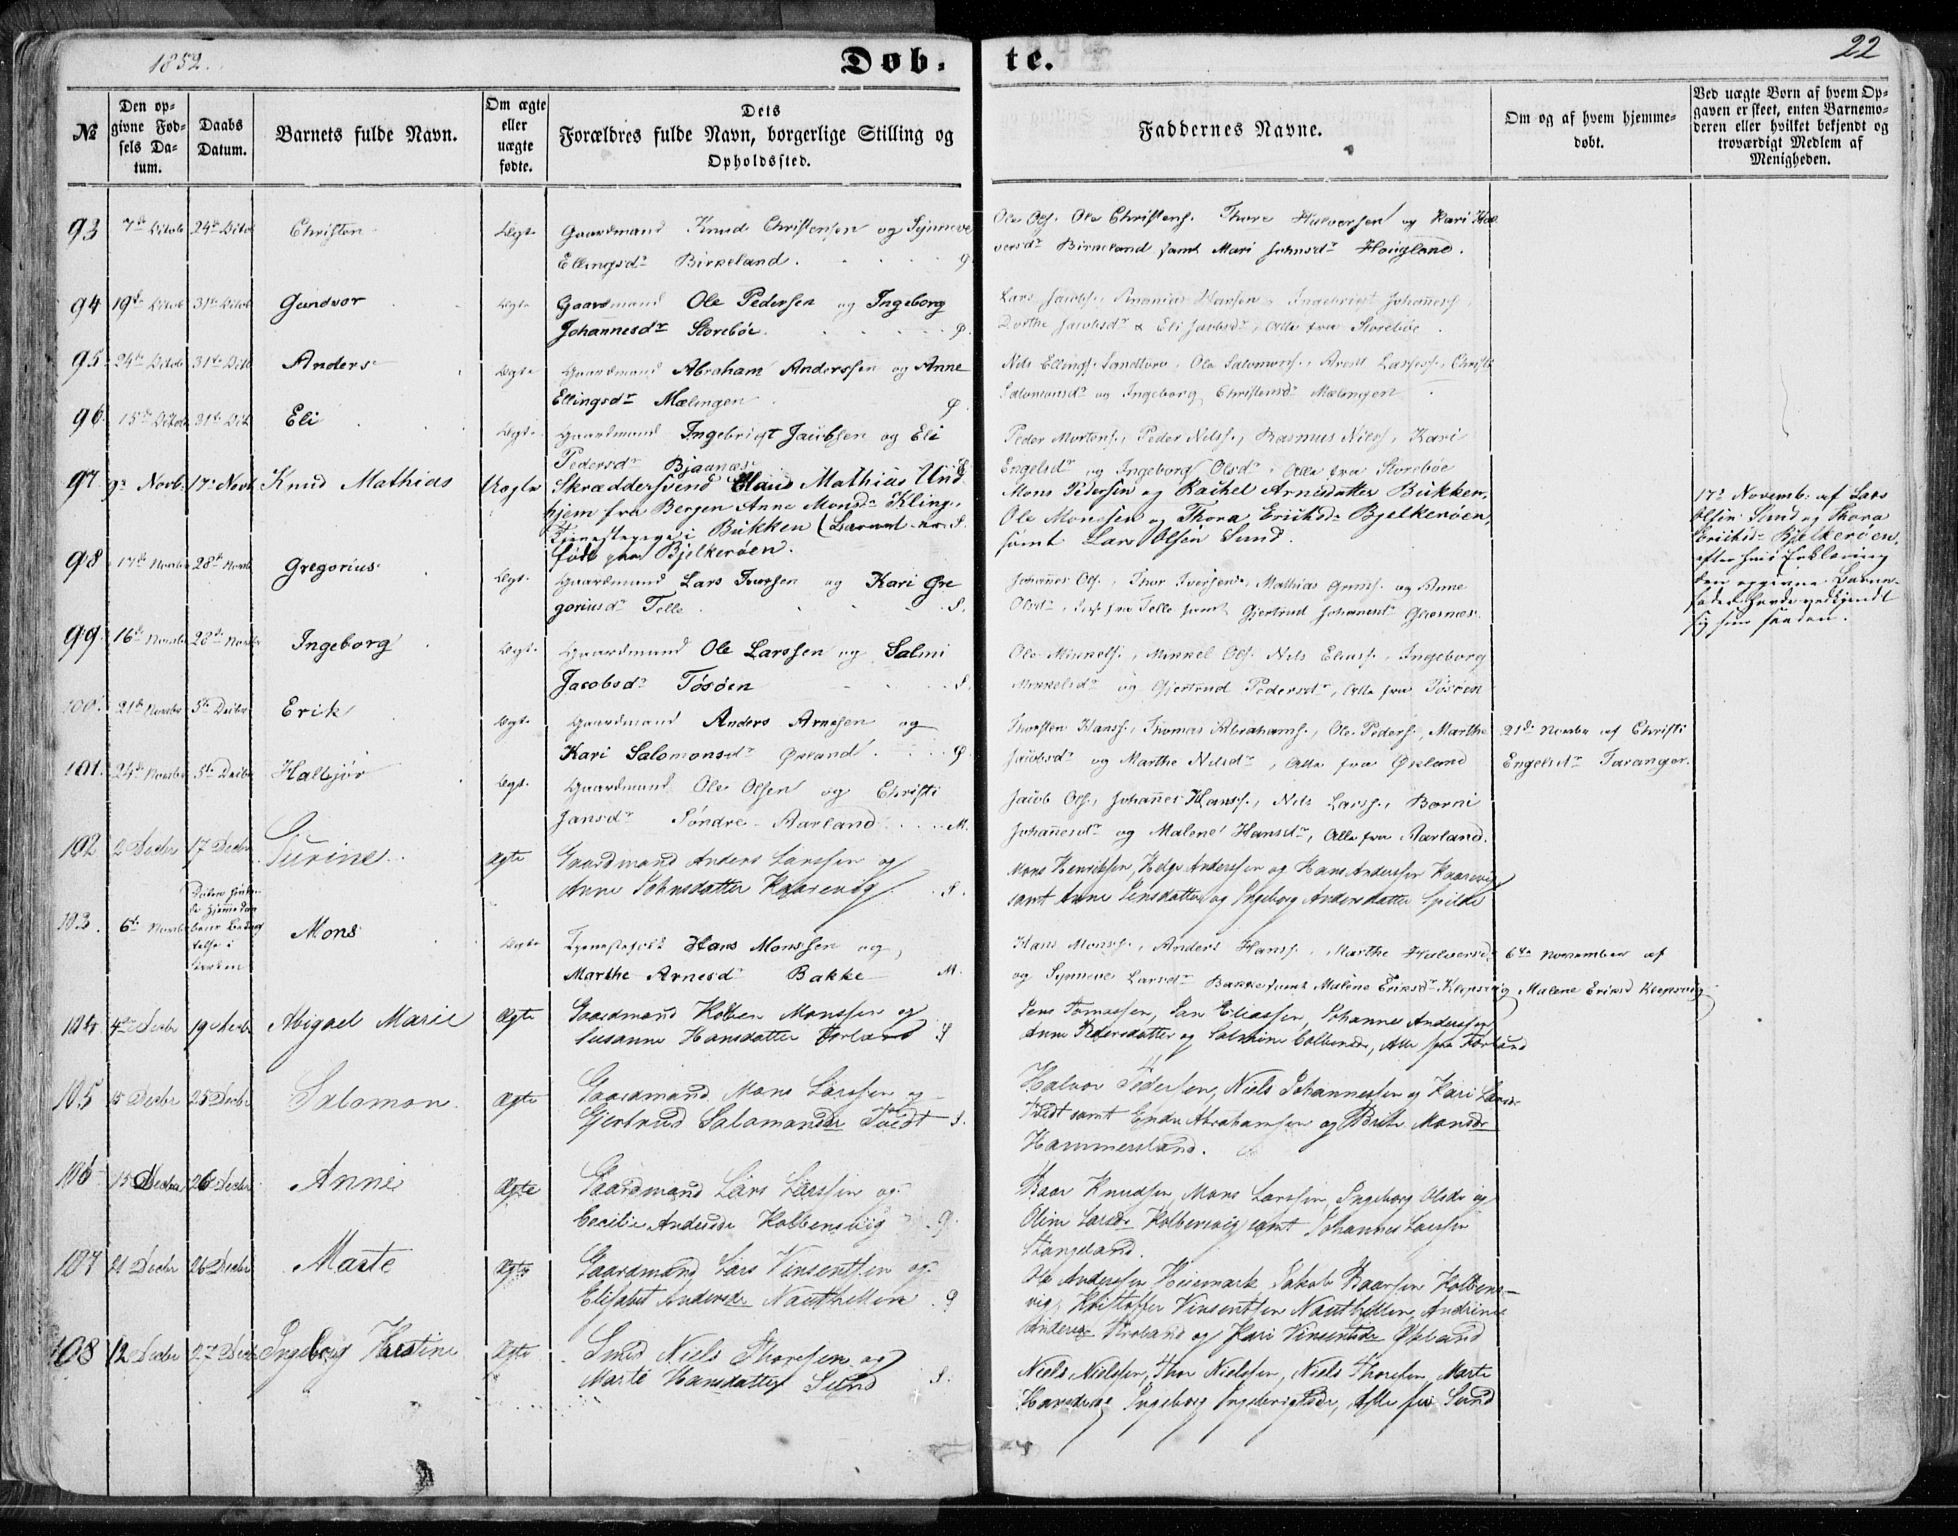 1852.
Døb-
te.
22
№
Den op-
givne Fød-
sels Da-
tum.
Daabs
Datum.
Barnets fulde Navn.
Om ægte
eller
uægte
fødte.
Dets
Forældres fulde Navn, borgerlige Stilling og
Opholdssted.
Faddernes Navne.
Om og af hvem hjemme-
døbt.
Ved uægte Børn af hvem Op-
gaven er skeet, enten Barnemo-
deren eller hvilket bekjendt og
troværdigt Medlem af
Menigheden.
93 7de 24de Christen Ægte Gaardmand Knud Christensen og Synneve
Ellingsdr Birkeland.
Ole Ols. Ole Christens. Thore Halversen og Kari Hal
versdr Birkeland samt Mari Johnsdr Hougland.
94 19de 31te Gundvor Ægte Gaardmand Ole Pedersen og Ingeborg
Johannesdr Storebøe.
Lars Jacobs., Ananias Hansen, Ingebrigt Johannes.
Dorthe Jacobsdr & Eli Jacobsdr, Alle fra Storebøe.
95 24de 31te Anders Ægte Gaardmand Abraham Anderssen og Anne
Ellingsdr Mælingen
Nils Ellings. Ole Salomons., Arent Larsess., Christi
Salomonsdr og Ingeborg Christensdr Mælingen
96. 15de 31te Eli Ægte Gaardmand Ingebrigt Jacobsen og Eli
Pedersdr Bjaanæs
Peder Mortens., Peder Nilss., Rasmus Nils., Kari
Engelsdr og Ingeborg Olsdr, Alle fra Storebøe
97. 9de Novb. 17de Novb Knud Mathias Uægte Skræddersvend Claus Mathias Und
hjem fra Bergen Anne Monsdr Kling,
Tjenestepige i Bukken (Barnet er S.
født paa Bjelkerøen.
Mons Pedersen og Rachel Arnesdatter Bukken,
Ole Monssen og Thora Erichsdr Bjelkerøen,
samt Lars Olsen Sund.
17de Novemb. af Lars
Olsen Sund og Thora
Erichsdr Bjelkerøen,
efter Erklæring
den opgivne Barne-
fader havde vedkjendt
sig som saadan.
98 17de Novbr 28de Novb Gregorius Ægt. Gaardmand Lars Iverssen og Kari Gre
goriusdr Telle S.
Johannes Ols., Thor Iversen, Mathias og Anne
Olsdr, fra Telle samt Gjertrud Johannesdr Glæsnæs
99. 16de Novbr 28de Novbr Ingeborg Ægt. Gaardmand Ole Larssen og Salmi
Jacobsdr Tøsøen S.
Ole Mikkels., Mikkel Ols. Nils Elias., Ingeborg
Mikkelsdr og Gjertrud Pedersdr, Alle fra Tøsøen
100. 21de Novbr 5te Decbr Erik Ægt. Gaardmand Anders Arnesen og
Kari Salomonsdr Øxland
Thorsten Hans., Thomas Abrahams., Ole Peders, Marthe
Jacobsdr og Marthe Nilsdr, Alle fra Øxland
21de Novbr af Christi
Engelsdr Taranger.
101. 24de Novbr 5te Decbr Halbjør Ægt. Gaardmand Ole Olsen og Christi
Jansdr Søndre Aarland M.
Jacob Ols., Johannes Hans., Nils Lars., Barni
Johannesdr og Malene Hansdr, Alle fra Aarland.
102 2 Decbr 17 Decbr Surine Ægte Gaardmand Anders Larssen og
Anne Johnsdatter Kaarevig S.
Mons Henrikssen, Helge Anderssen og Hans Anderssen Kaarevig
samt Anne Jensdatter og Ingeborg Andersdatter Spilde
103. 6te Novbr Mons Ægte Tjenestefolk Hans Monssen og
Marthe Arnesdr Bakke M.
Hans Monss., Anders Hanss., Marthe Halversd.
og Synneve Larsdr Bakke samt Malene Eriksdr Klepsvig
6te november af
Malene Eriksd Klepsvig
104 4de Decbr 19 Decb Abigael Marie Ægte Gaardmand Kolben Monssen og
Susanne Hansdatter Førland S
Jens Tomassen, Jan Eliassen, Johannes Anderssen
Anne Pedersdatter og Salmine Colbensdr, Alle fra Førland
105 15 Decbr 25 Decbr Salomon Ægte Gaardmand Mons Larssen og
Gjertrud Salamonsdr Tvedt S.
Halvor Pedersen, Niels Johannessen og Kari Larsdr
Tvedt samt Endre Abrahamsen og Brite Monsdr
Hammersland.
106 15 Decbr 26 Decbr Anne Ægte Gaardmand Lars Larssen og
Cecilie Andersdr Kolbensvig
Baar Knudsen, Mons Larssen, Ingeborg Olsdr og
Oline Larsdr Kolbensvig samt Johannes Larssen
Stangeland.
107 21 Decbr 26 Decbr Marte Ægte Gaardmand Lars Vinsentsen og
Elisabet Andersdr Nauthellen
Ole Anderssen Heiemark Jakob Baarsen Kolbens-
vig, Kristoffer Vinsentsen Nauthellen, Andrine
Andersdr og Kari Vinsentsdr Øxland
108 12 Decbr 27 Decbr Ingeborg Kristine Ægte Smed Niels Thoresen og
Marte Hansdatter Sund S.
Niels Nielssen, Thor Nielssen, Niels Thoresen, Marte
Hansdr og Ingeborg Ingebrigtsdr, Alle fra Sund